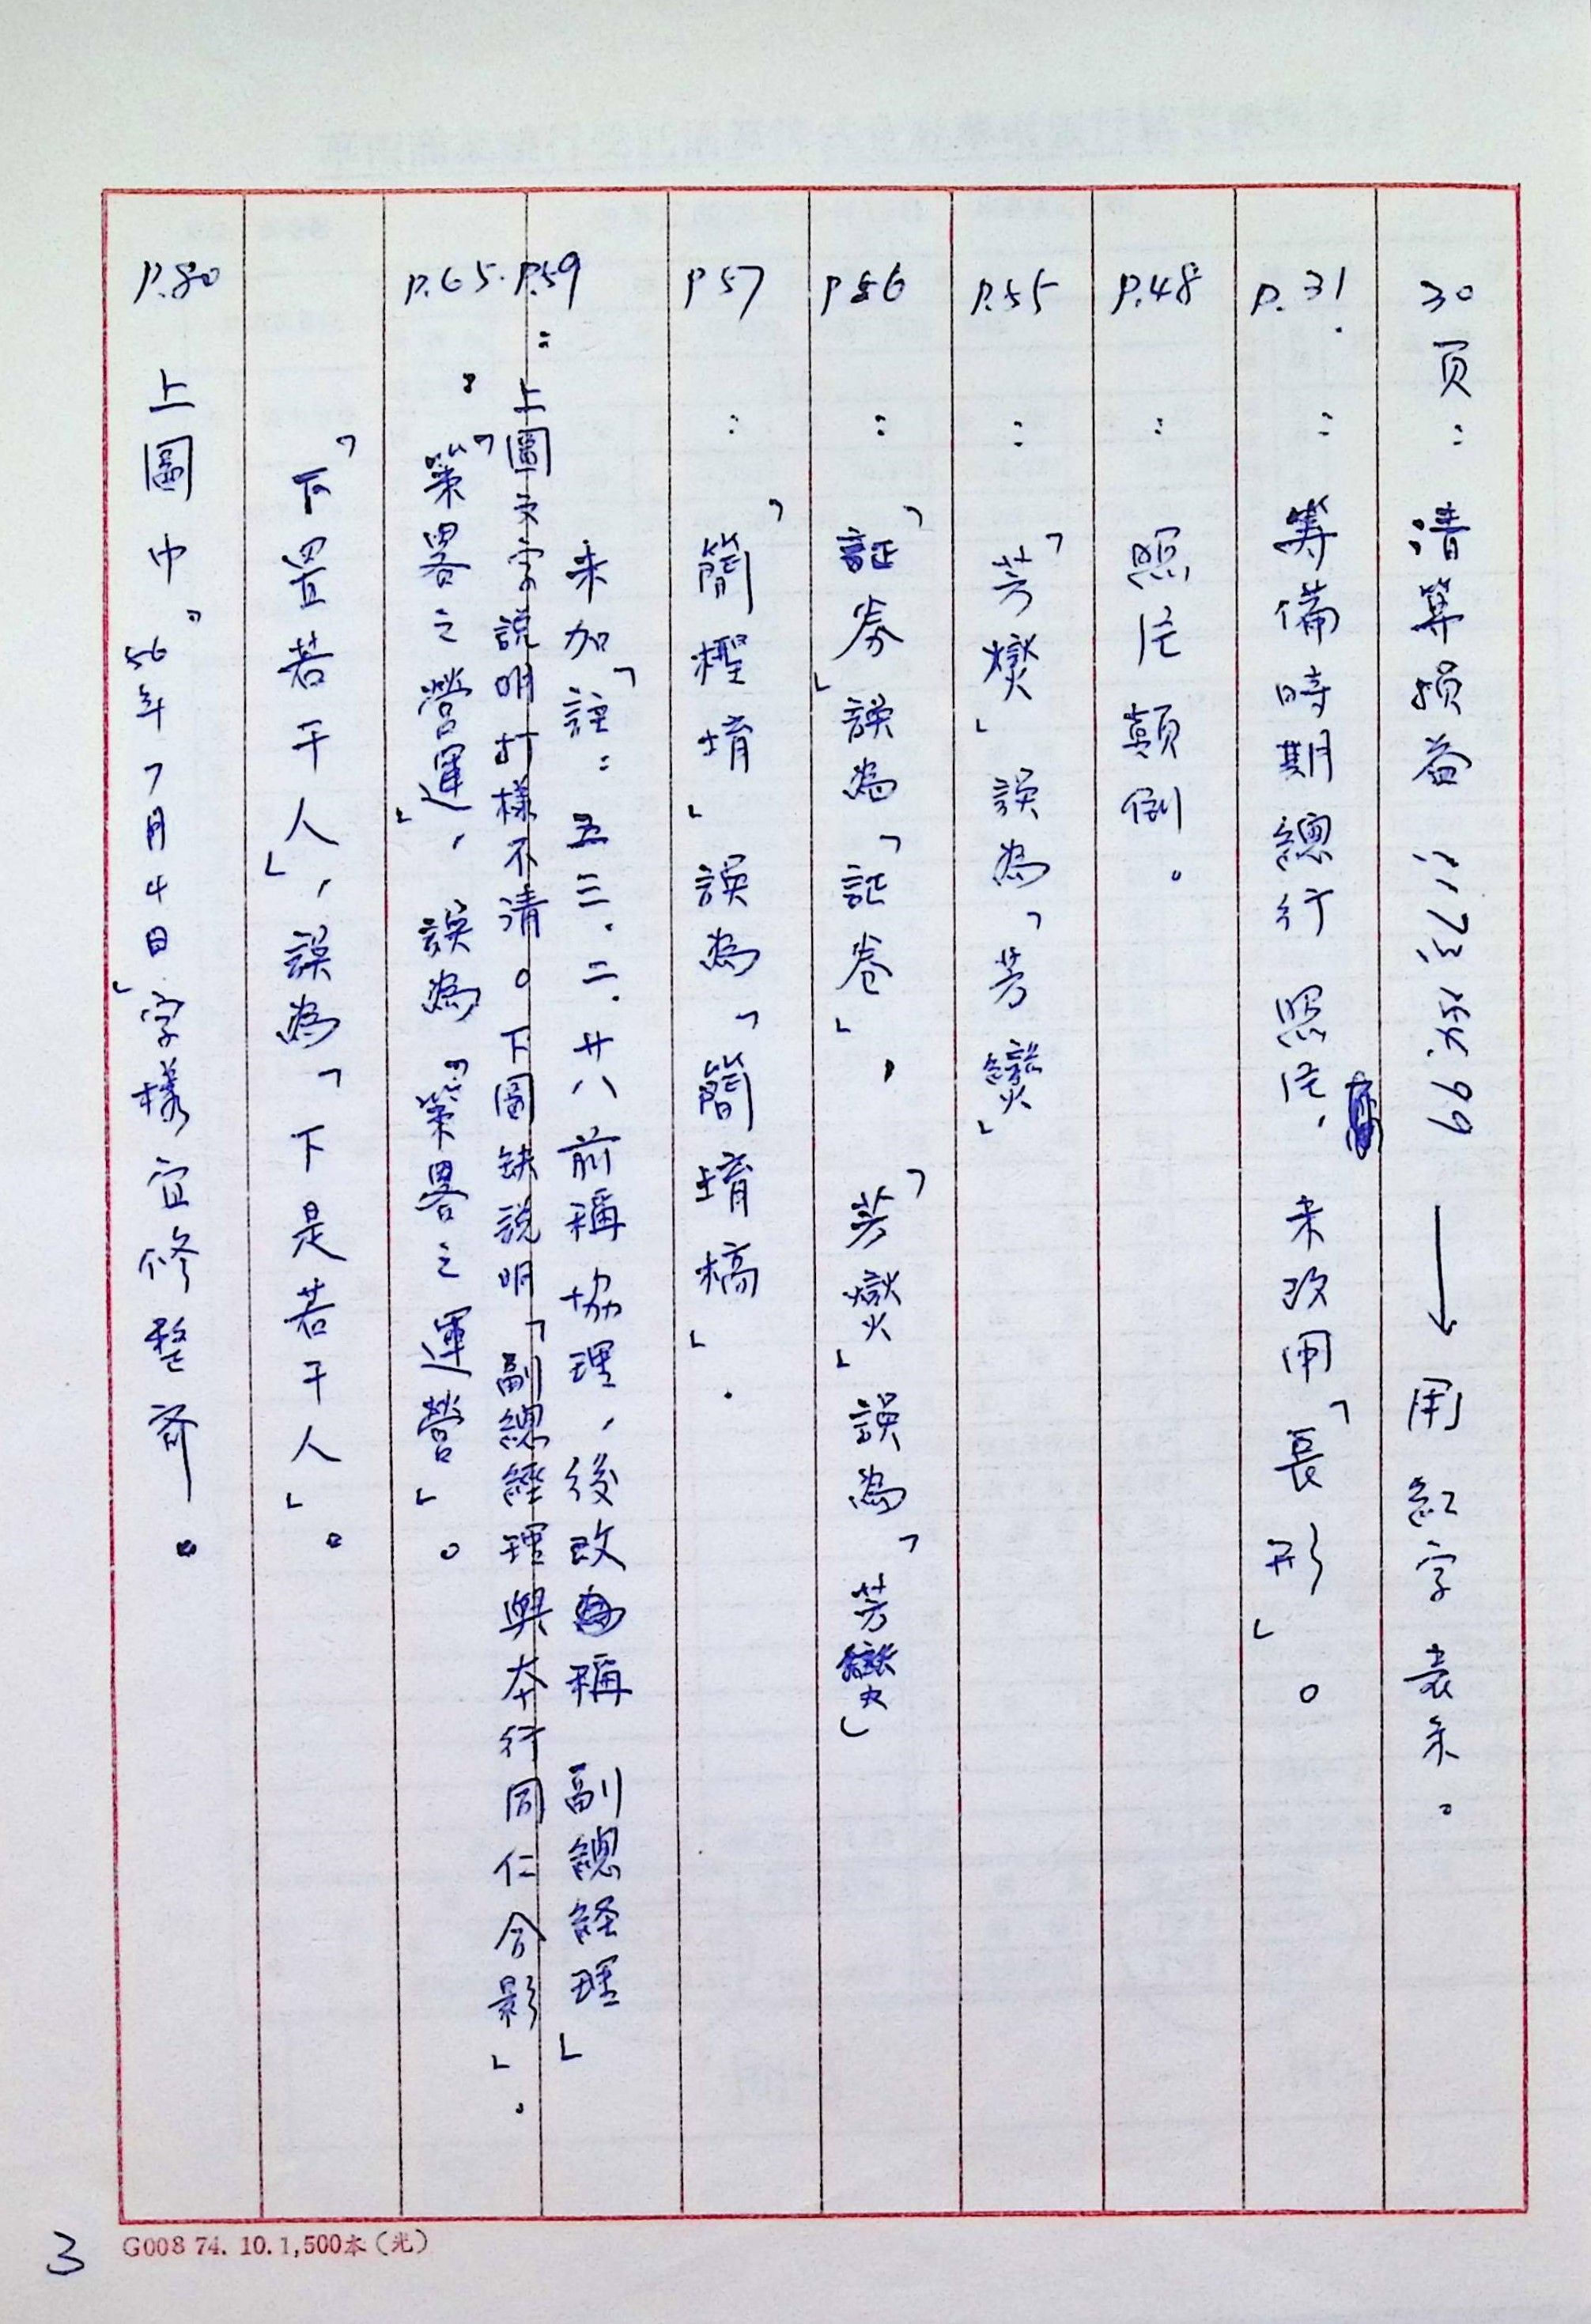 30頁：清算損益 →用紅字表示。
P.31.：籌備時期總行照片，未改用「長形」。
P.48：照片顛倒。
P.55：「芳燮」誤為「芳變」
P56：「証券」誤為「証卷」，「芳燮」誤為「芳變」
P57：「簡樫堉」誤為「簡堉槁」.
P.59：未加「註：五三.二.廿八前稱協理，後改為稱 副總経理」
上圖文字說明打樣不清。下圖缺說明「副總經理與本行同仁合影」.
P.65.：「策畧之營運」，誤為「策畧之運營」。
「下置若干人」，誤為「下是若干人」。
P.80 上圖中“56年7月4日」字樣宜修整齊。
3
G008 74. 10. 1,500本(光)